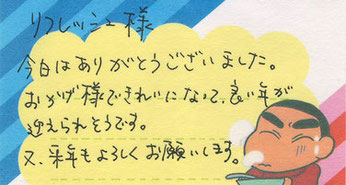 リフレッシュ様
今日はありがとうございました。
おかげ様できれいになって、良い年が
迎えられそうです。
又、来年もよろしくお願いします。